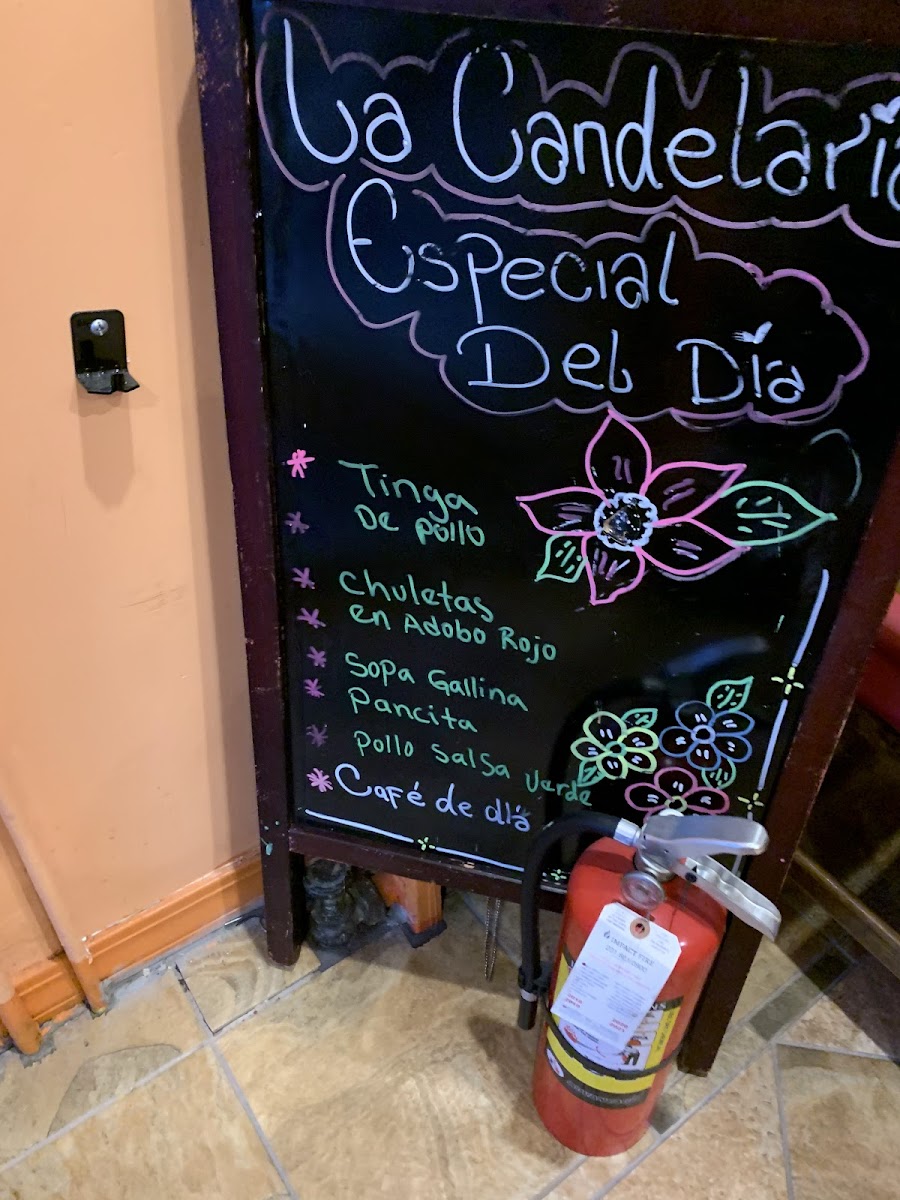 La Candelaria
Especial
Del Día
Tinga
De pollo
Chuletas
en Adobo Rojo
Sopa Gallina
Pancita
pollo salsa Verde
Café de día
IMPACT FIRE